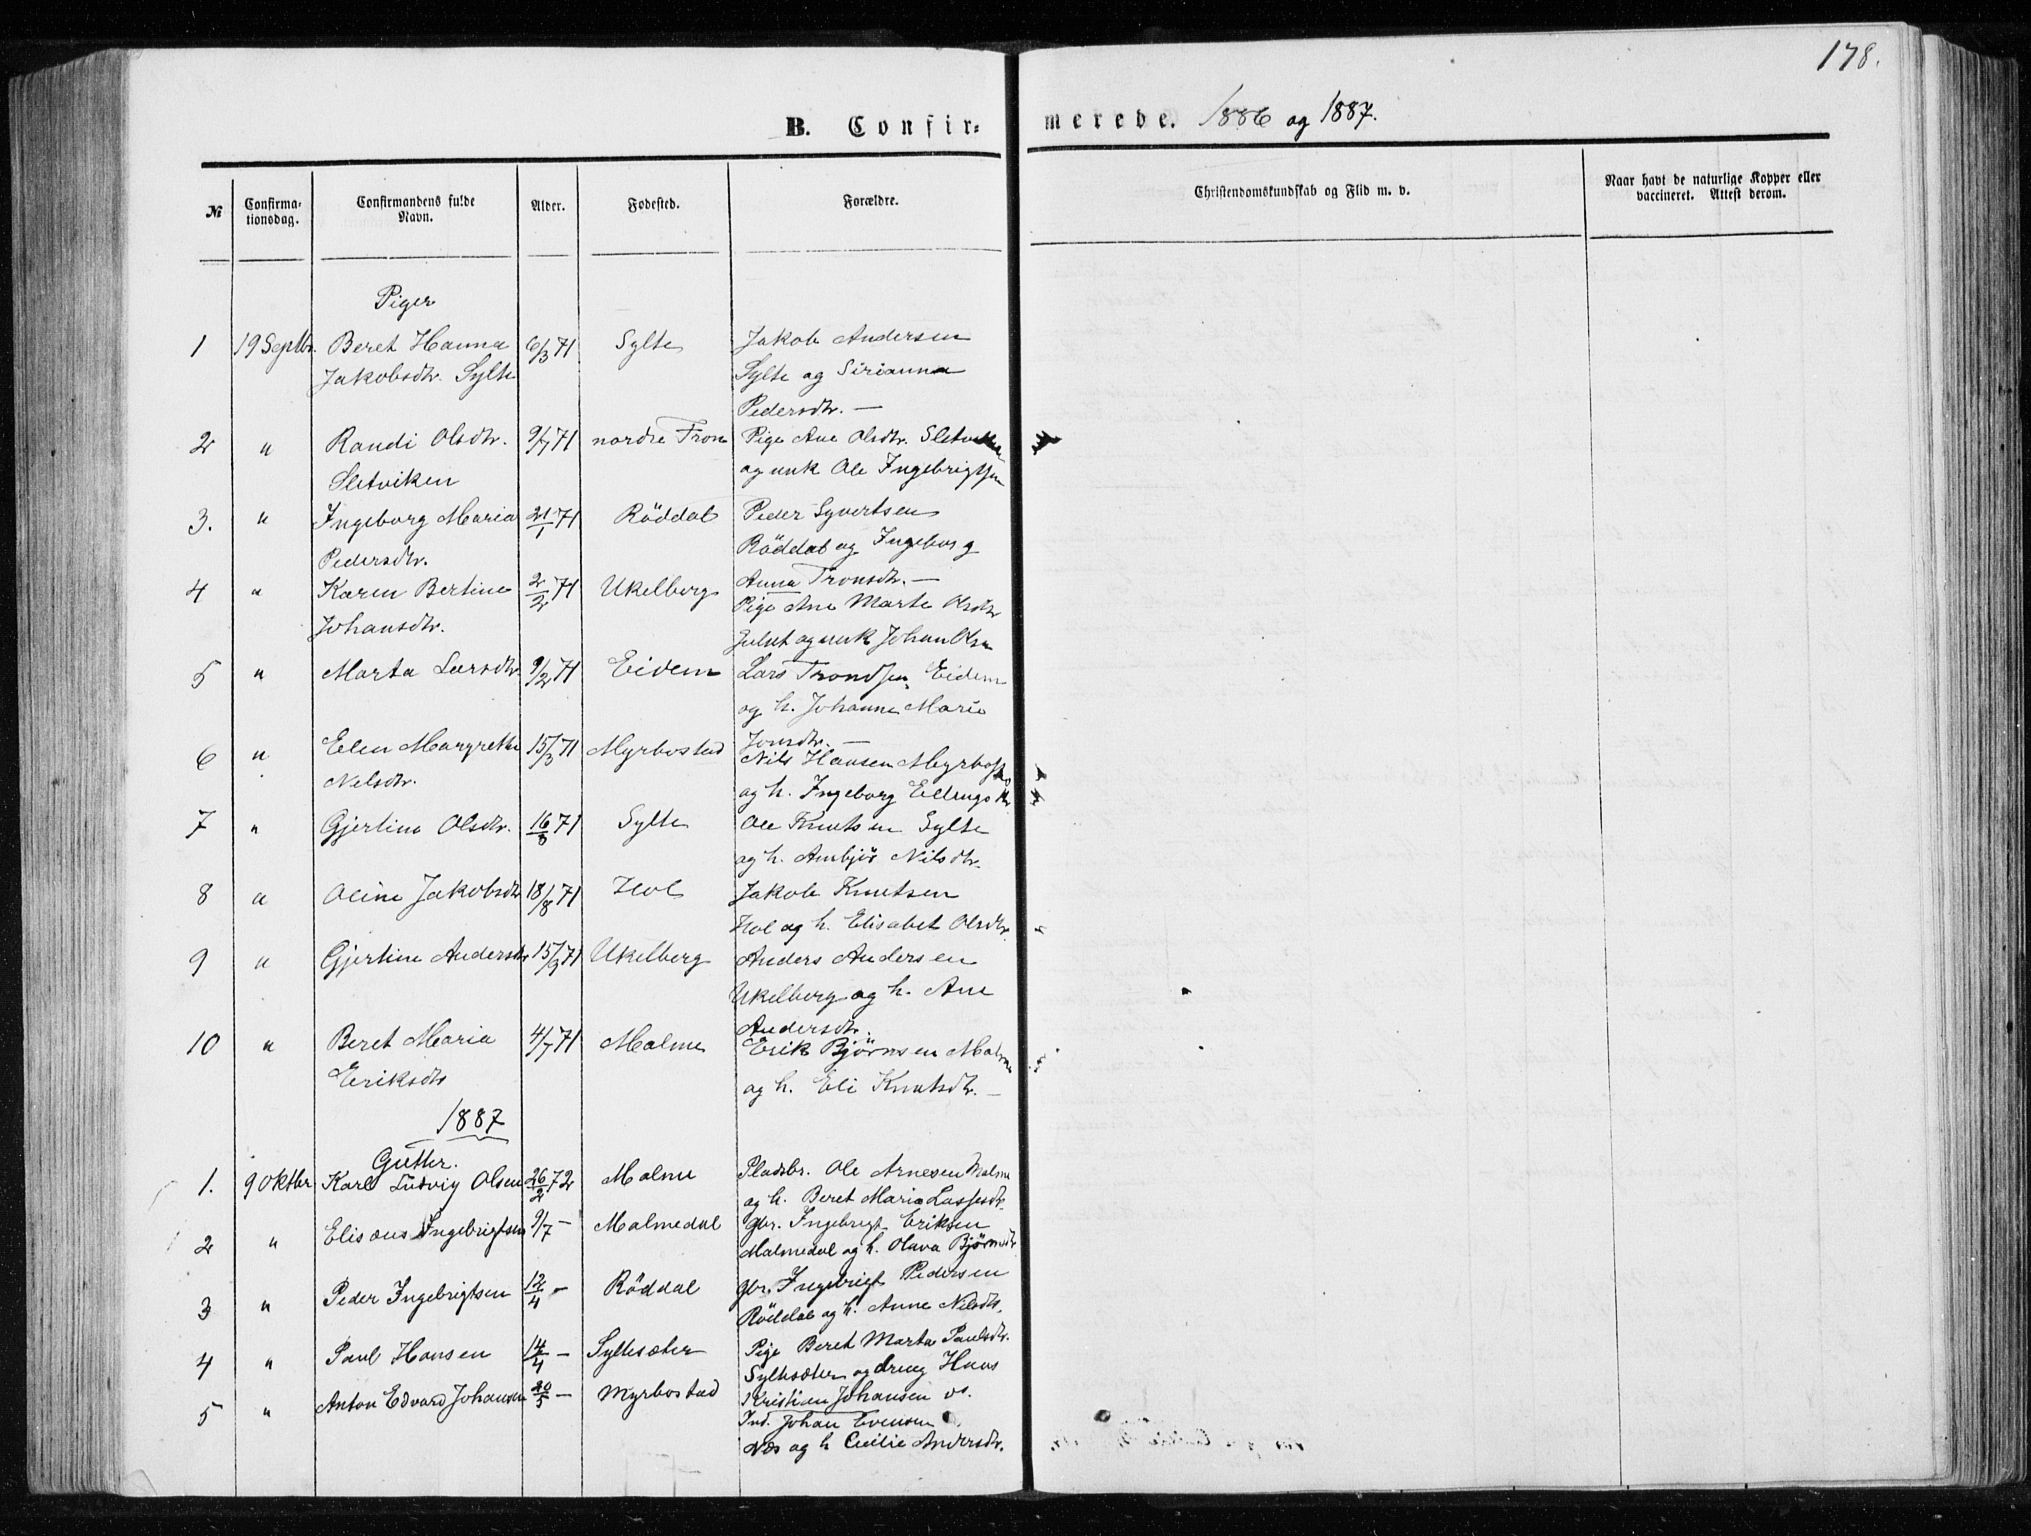 178.
B. Confirmerede. 1886 og 1887.
№ Confirmationsdag. Confirmandens fulde Navn. Alder. Fodested. Forældre. Christendomskundskab og Flid m. v. Naar havt de naturlige Kopper eller vaccineret. Attest derom.
Piger
1 19 Septbr. Beret Hanna 6/3 71 Sylte Jakob Andersen
Jakobsdtr. Sylte Sylte og Sirianna
Pedersdtr. —
2 " Randi Olsdtr. 9/7 71 nordre Fron Pige Ane Olsdtr. Sletviken
Sletviken og unk Ole Ingebrigtsen
3. " Ingeborg Maria 21/1 71 Röddal Peder Syvertsen
Pedersdtr. Röddal og Ingeborg
Anna Tronsdtr. —
4 " Karen Bertine 2/2 71 Ukelberg Pige Ane Marte Olsdtr
Johansdtr. og unk Johan Olsen
5 " Marta Larsdtr. 9/2 71 Eidem Lars Trondsen Eidem
og h. Johanne Marie
Jonsdtr. —
6 " Elen Margrethe 15/3 71 Myrbostad Nils Hansen Myrbostad
Nelsdtr. og h. Ingeborg
7 " Gjertine Olsdtr. 16/8 71 Sylte Ole Knutsen Sylte
og h. Ambjør Nilsdtr.
8 " Oline Jakobsdtr 18/8 71 Hol Jakob Knutsen
Hol og h. Elisabet Olsdtr.
9 " Gjertine Andersdtr 15/9 71 Ukelberg Anders Andersen
Ukelberg og h. Ane
Andersdtr.
10 " Beret Maria 4/7 71 Malme Erik Bjørnsen Malme
Eriksdtr og h. Eli Knutsdtr. —
1887
Gutter.
1. 9 Oktbr Karl Ludvig Olsen 26/2 72 Malme Pladsbr. Ole Arnesen Malme
og h. Beret Maria Lassesdtr.
2 " Elisæus Ingebrigtsen 9/7 — Malmedal gbr. Ingebrigt Eriksen
Malmedal og h. Olava Bjørnsdtr
3 " Peder Ingebrigtsen 12/4 — Röddal gbr. Ingebrigt Pedersen
Röddal og h. Anne Nilsdtr.
4 " Paul Hansen 14/4 — Syltesæter Pige Beret Marta Paulsdtr.
Syltesæter og dreng Hans
Kristian Johansen
5 " Anton Edvard Johansen 20/5 — Myrbostad Ind. Johan Evensen
Næs og h Cecilie Andersdtr.